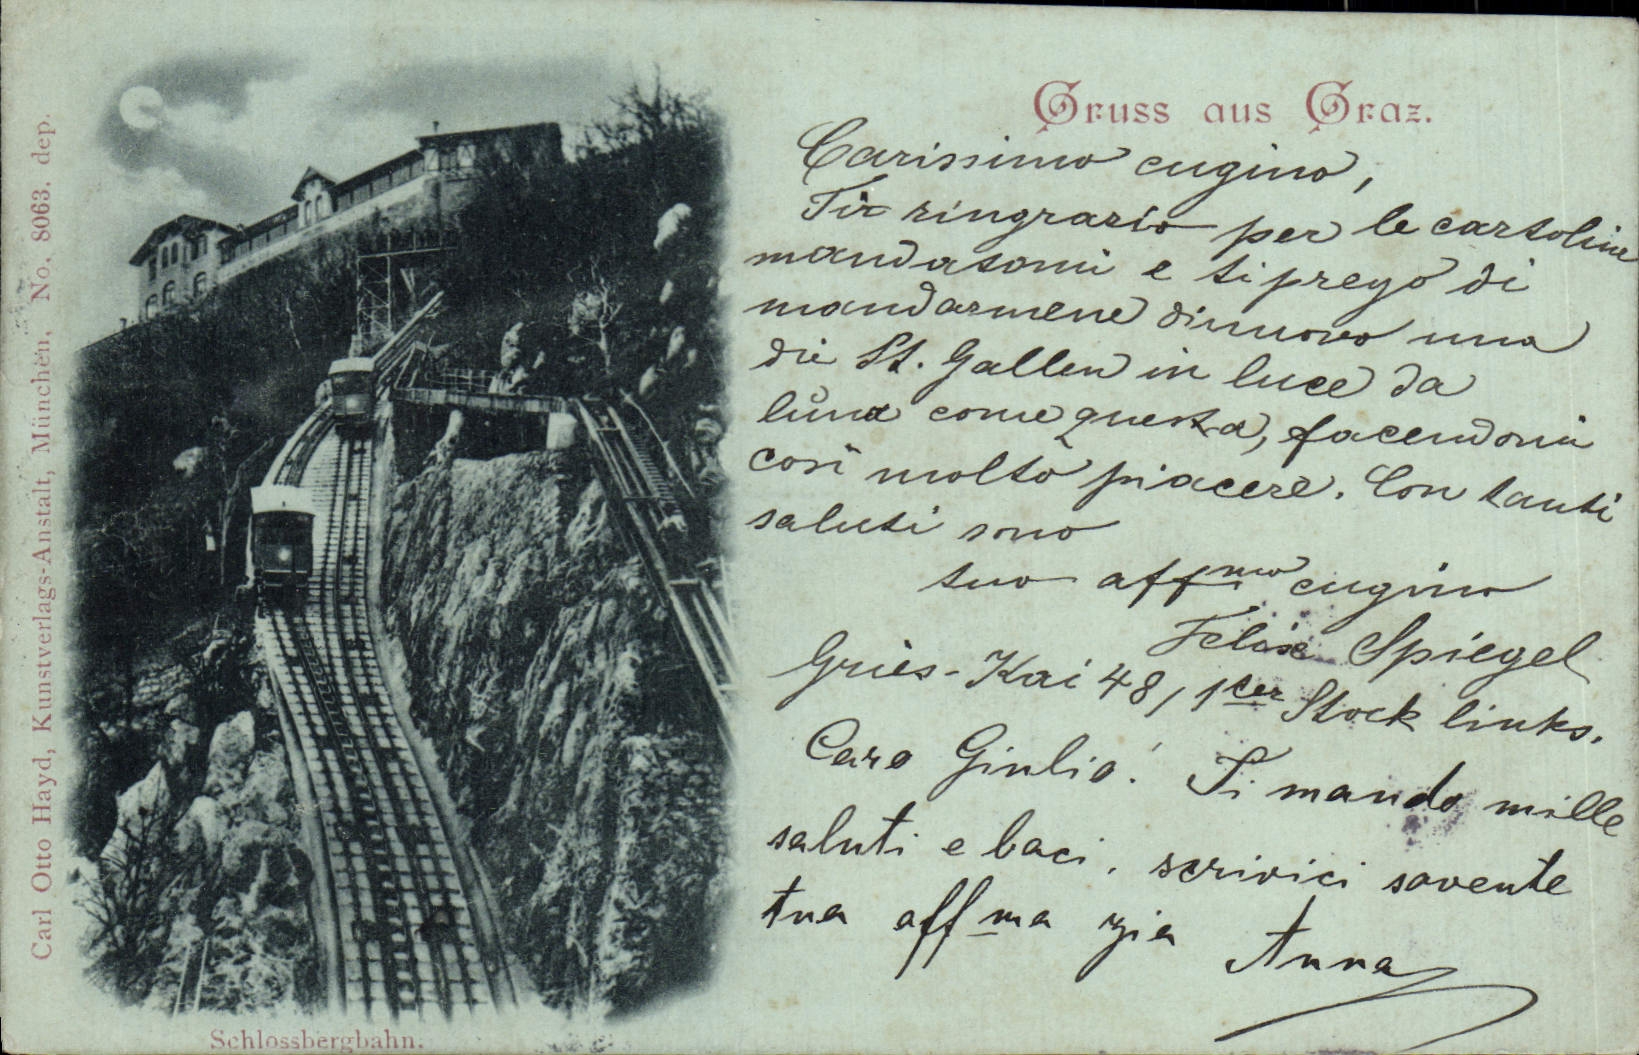 Gruss aus Graz.
Carissimo cugino,
Ti ringrazio per le cartoline
mandatomi e ti prego di
mandarmene dinuovo una
die St. Gallen in luce da
luna come questa, facendomi
così molto piacere. Con tanti
saluti sono
tuo affmo cugino
Felice Spiegel
Gries-Kai 48, 1ter Stock links.
Caro Giulio! Ti mando mille
saluti e baci, scrivici sovente
tua affma zia Anna
Schlossbergbahn.
Carl Otto Hayd, Kunstverlags-Anstalt, München, No. 8063. dep.